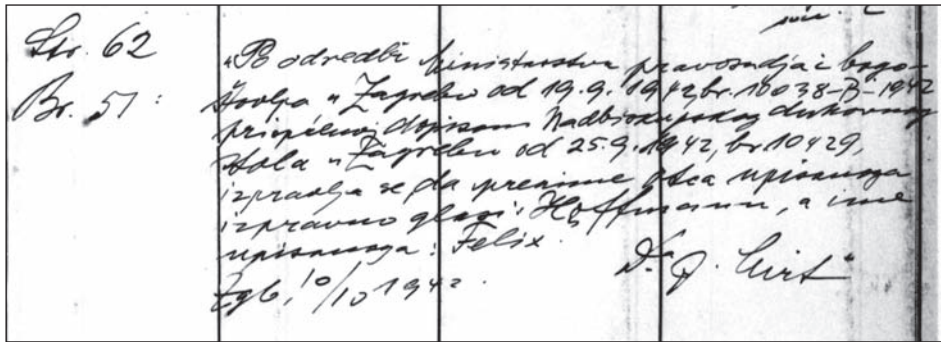 Str. 62
Br. 51:
„Po odredbi Ministarstva pravosudja i bogo-
štovlja u Zagrebu od 19.9.1942, br. 10038-B-1942
priopćenoj dopisom Nadbiskupskog duhovnog
stola u Zagrebu od 25.9.1942, br 10429,
izpravlja se da prezime otca upisanoga
izpravno glasi: Hoffmann, a ime
upisanoga: Felix.
Zgb, 10/10 1942.
Dr.